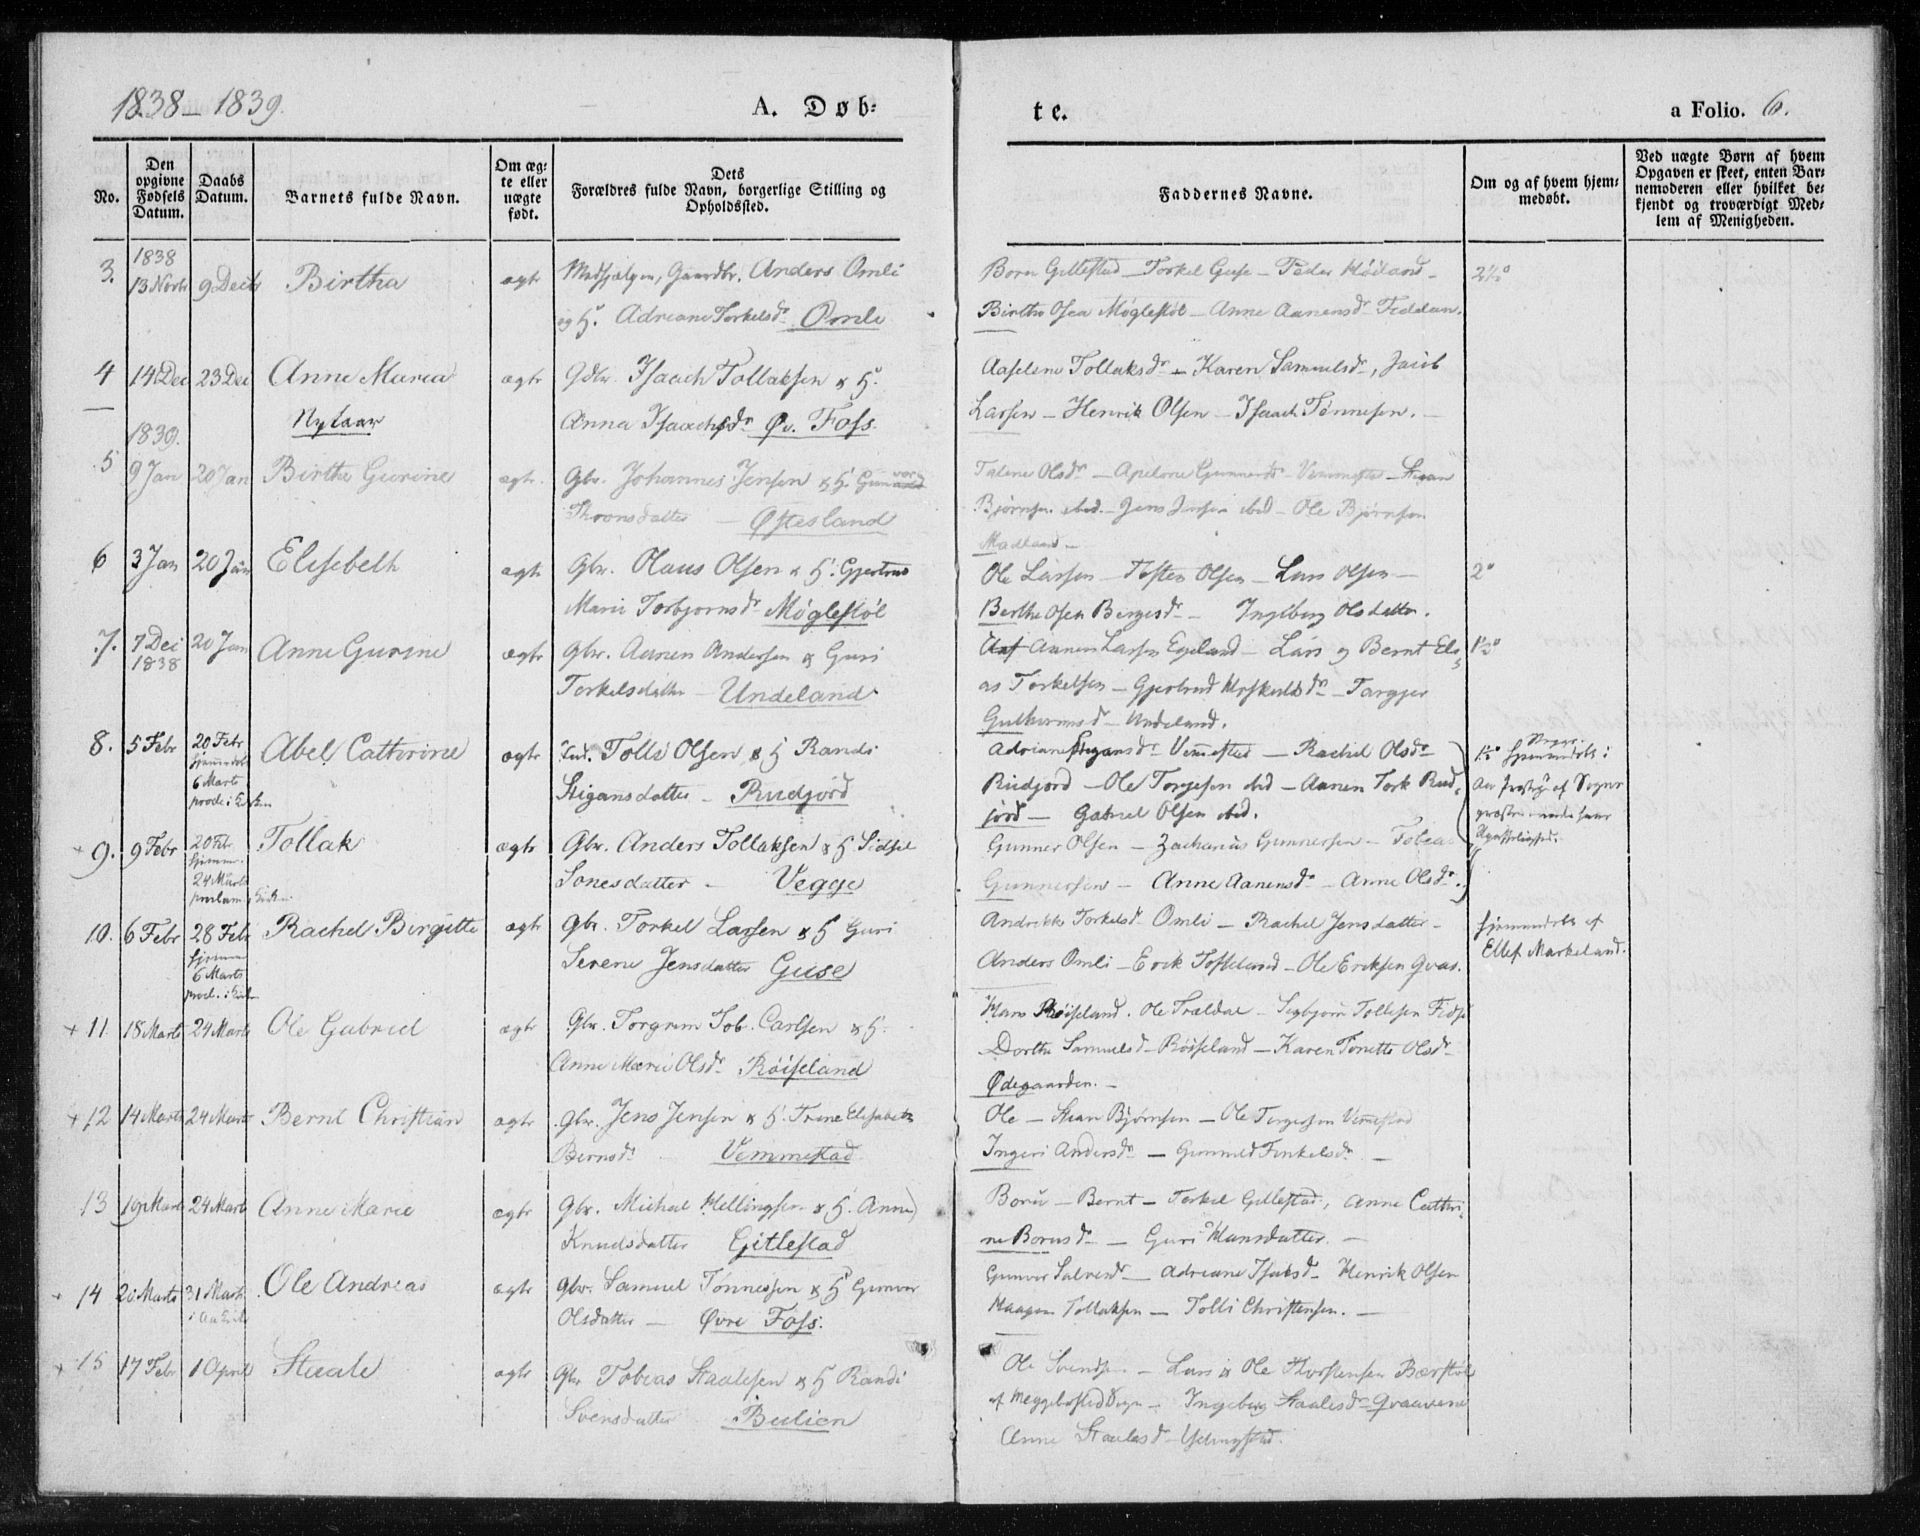 1838 - 1839.
A. Døb-
te.
a Folio. 6.
No.
Den opgivne Fødsels Datum.
Daabs Datum.
Barnets fulde Navn.
Om ægte eller uægte født.
Dets Forældres fulde Navn, borgerlige Stilling og Opholdssted.
Faddernes Navne.
Om og af hvem hjemmedøbt.
Ved uægte Børn af hvem Opgaven er skeet, enten Barnemoderen eller hvilket bekjendt og troværdigt Medlem af Menigheden.
1838
3. 13 Novb 9 Decb Birtha ægte Gaardbr. Anders Omli
og H. Adriane Torkelsdr Omli
Boru Gillestad - Torkel Guse - Peder Høiland -
Birthe Møglestøl - Anne Aanensdr Feddan.
4 14 Dec 23 Dec Anne Maria ægte Gdbr. Isaach Tollaksen & H.
Nylaar
Anna Isaachsdr Øv. Foss.
Aaselene Tollaksdr - Karen Samuelsdr, Jacob
Larsen - Henrik Olsen - Isaach Tønnesen. -
1839.
5 9 Jan 20 Jan Birthe Gurine ægte. Gbr. Johannes Jensen & H. Gunvor
- Øftesland
Talene Olsdr - Gunnersdr - Vemmestad - Stian
Bjørnsen ibid. - Jens Jensen ibid - Ole Bjørnsen
Madland -
6 3 Jan 20 Jan Elisebeth ægte Gbr. Olaus Olsen & H. Gjertrud
Marie Torbjørnsdr Møglestøl
Ole Larsen - Tosten Olsen - Lars Olsen -
Berthe Børgesdr - Ingeborg Olsdatter.
2°
7. 7 Dec 20 Jan Anne Gurine ægte Gbr. Aanen Andersen & Guri
1838
Torkelsdatter - Undeland
Aanen Larsen Egeland - Lars og Bernt Eli-
as Torkelsen - Gjertrud Asskildsdr - Targjer
Guthormsdr - Undeland.
8. 5 Febr 20 Febr hjemmedøbt 6 Marts prod. i Kirken Abel Cathrine ægte Tolli Olsen & H Randi
Stigansdatter - Rudjord
Adriane Stigansdr Vemmestad - Rachel Olsdr
Rudjord - Ole Torgesen ibid - Aanen Tork Rud-
jord - Gabriel Olsen ibid.
hjemmedøbt i
Præstg af Sogne
præsten
+ 9. 9 Febr 20 Fbr. hjemm. 24 Marts i Kirken Tollak ægte Gbr. Anders Tollaksen & H Sidsel
Tonesdatter - Vegge
Gunner Olsen - Zacharias Gunnersen - Tobias
Gunnersen - Anne Aanensdr - Anne Olsdr.
10. 6 Febr 28 Febr hjemm 6 Marts prod. i Kirken Rachel Birgitte ægte Gbr. Torkel Larsen & H Guri
Serene Jensdatter Guse
Andrikke Torkelsd Omli - Rachel Jensdatter -
Anders Omli - Erik Tosseland - Ole Eriksen Gvas.
hjemmedøbt af
Ellef Markeland.
+ 11. 18 Marts 24 Marts Ole Gabriel ægte Gbr. Torgrim Tob. Carlsen & H.
Anne Marie Olsdr Røiseland
Hans Røiseland. Ole Trældal - Sigbjørn Tollesen Fidse
Dorthe Samuelsd - Røiseland - Karen Tonette Olsdr
Ødegaarden. -
+ 12 14 Marts 24 Marts Bernt Christian ægte Gbr. Jens Jensen & H. Trine Elisabeth
Berntsdr Vemmestad
Ole - Stian Bjørnsen - Ole Torgersen Vemmestad
Ingeri Andersdr - Gunnild Finkelsdr -
13 19 Marts 24 Marts Anne Marie ægte Gbr. Michael Mellingsen & H. Anne
Knudsdatter Gitlestad
Boru - Bernt - Torkel Gillestad, Anne Cathri-
ne Borusdr - Guri Hansdatter. -
+ 14 20 Marts 31 Marts i Aa Kirke Ole Andreas ægte Gbr. Samuel Tønnessen & H Gunvor
Olsdatter - Øvre Foss.
Gunvor Salvesdr - Adriane Isaksd - Henrik Olsen
Haagen Tollaksen - Tolli Christensen. -
+ 15 17 Febr 1 April Staale ægte Gbr Tobias Staalesen & H Randi
Svensdatter Bulien
Ole Svendsen - Lars & Ole Thorstensen Bærstøl
af Sogn - Ingeborg Staalesdr Qvavene
Anne Staalesdr -